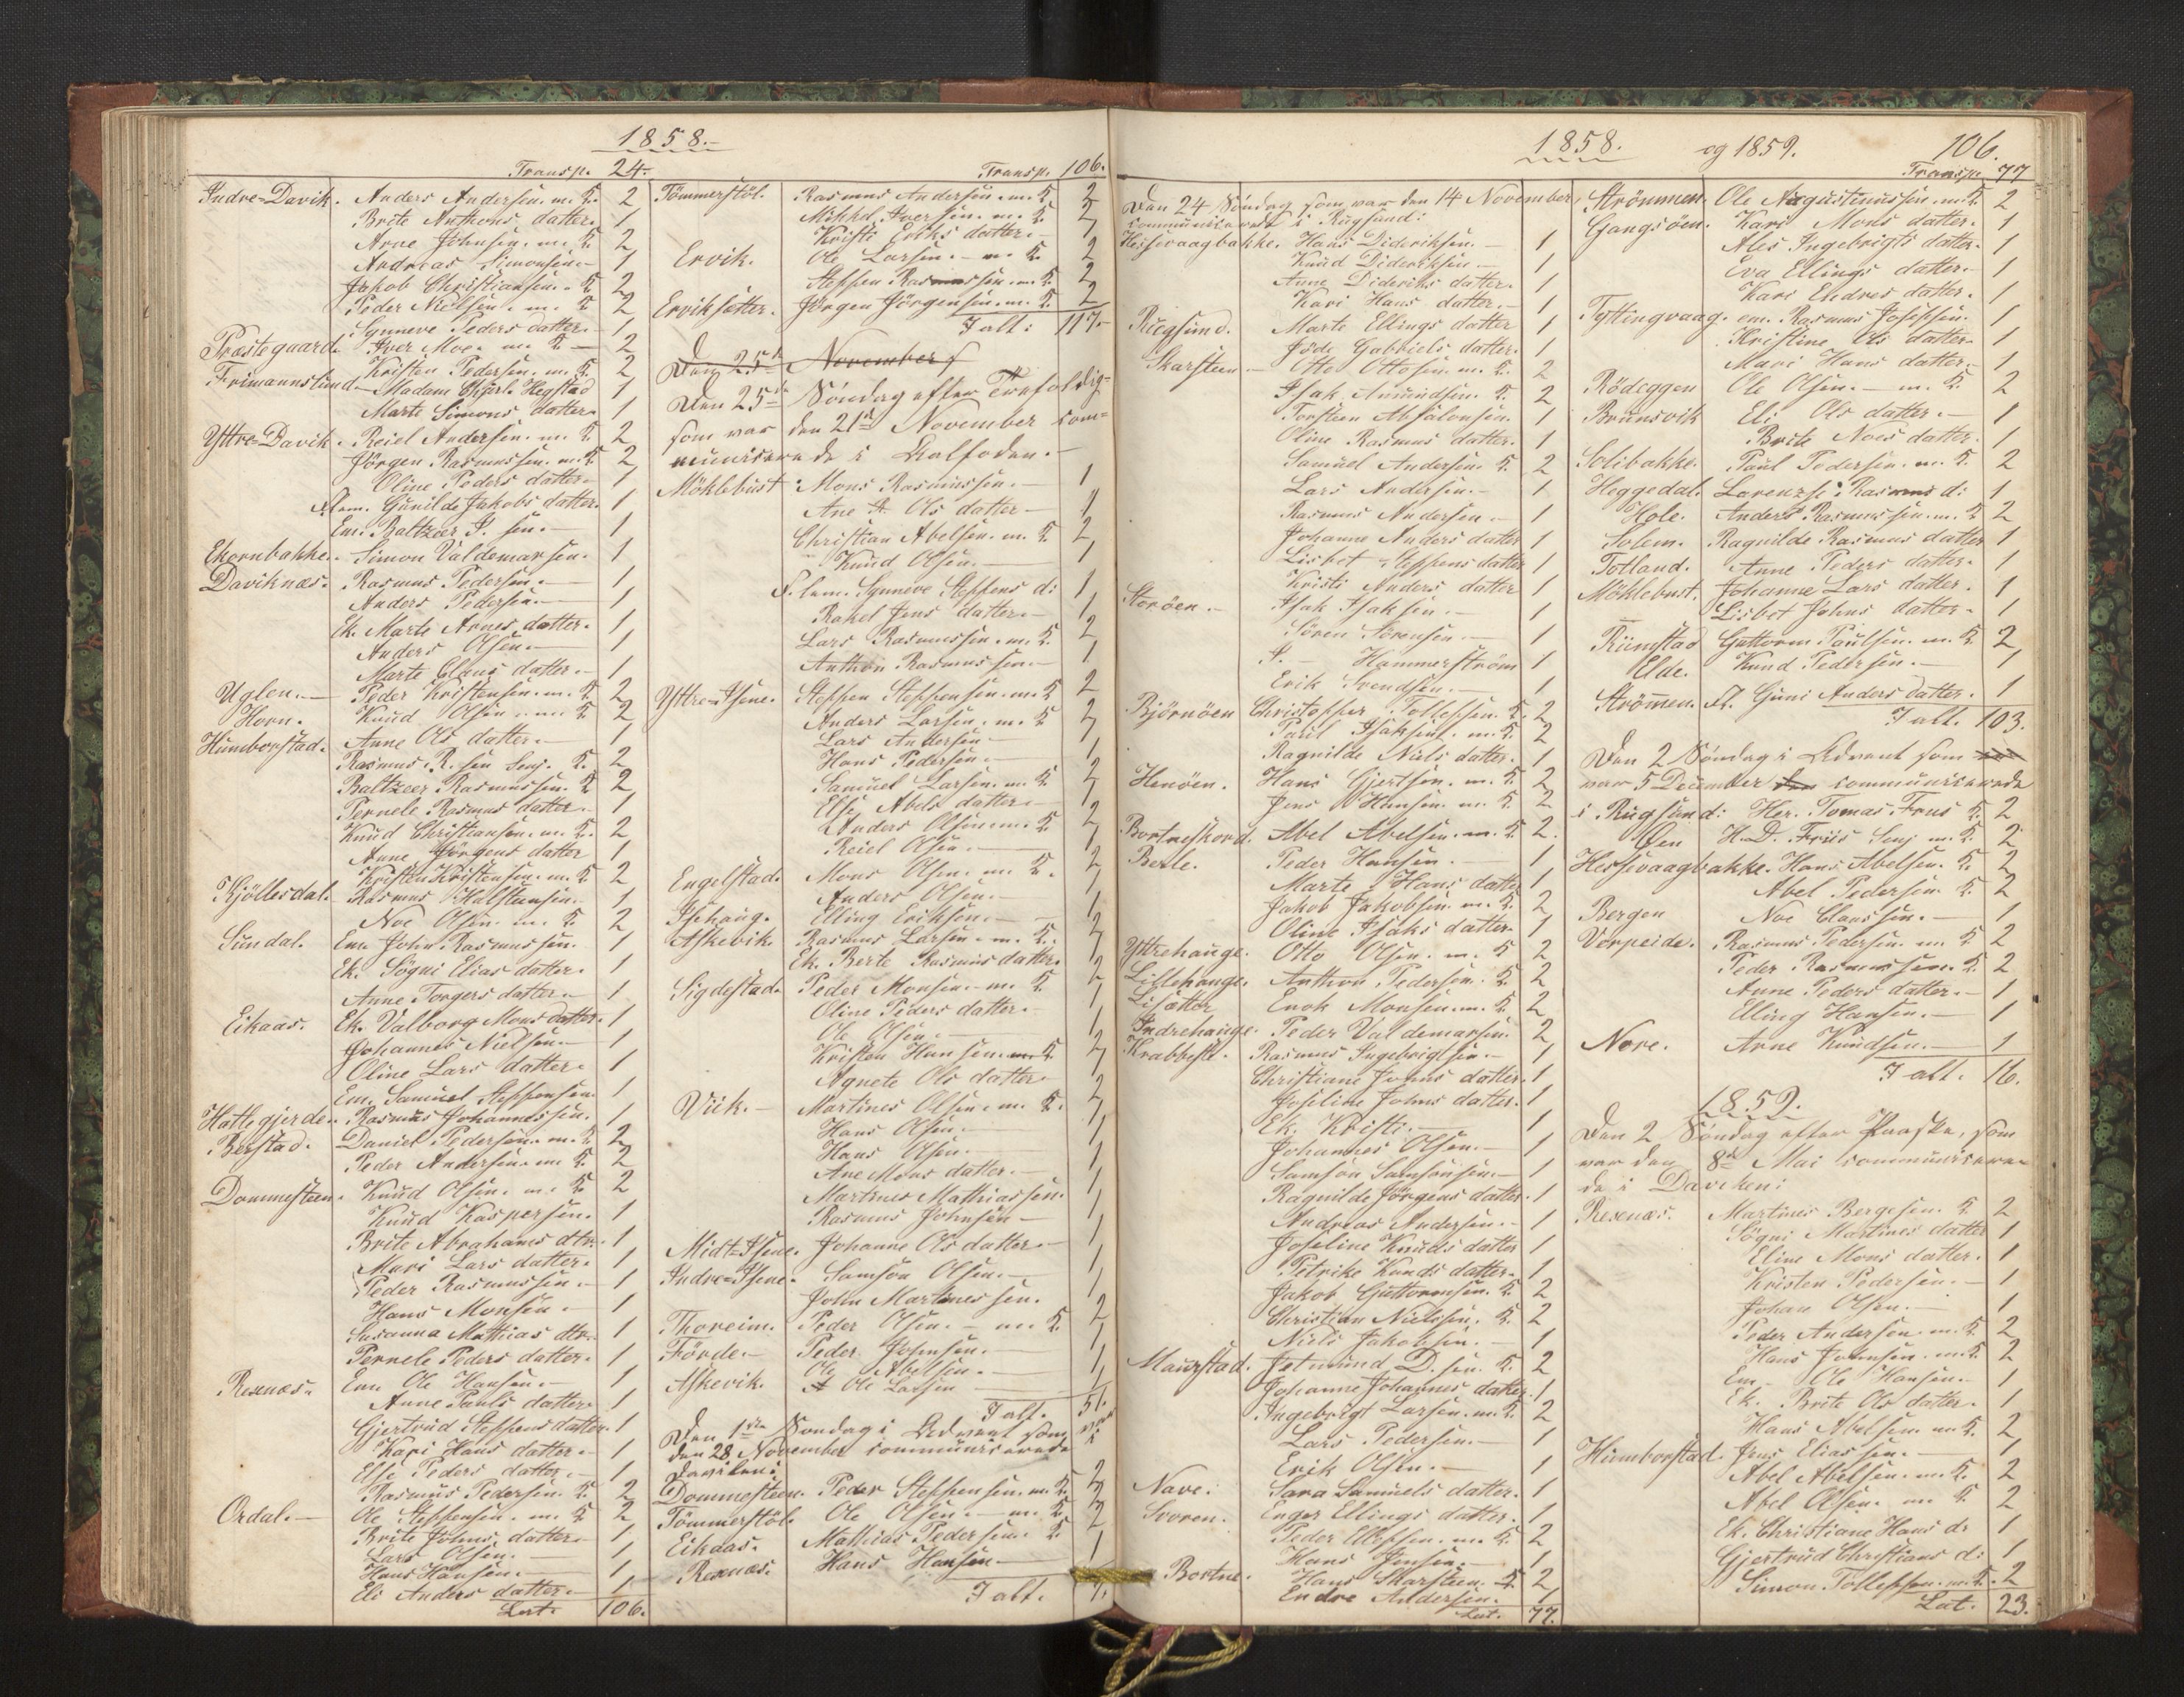 1858.
Transp. 24.
Indre=Davik. Anders Andersen. m. K. 2
Brite Anthons datter. 1
Arne Johnsen. m. K. 2
Andreas Simonsen. 1
Jakob Christiansen. K. 2
Peder Nielsen. m. K. 2
Synneve Peders datter. 1
Præstegaard. Iver Moe. m. K. 2
Kristen Pedersen. m. K. 2
Frimannslund. Madam Hegstad 1
Marte Simons datter. 1
Yttre=Davik. Reiel Andersen. m. K. 2
Jörgen Rasmussen. m. K. 2
Oline Peders datter. 1
Gunilde Jakobs datter. 1
Em. Baltzer P. sen. 1
Ekornbakke. Simon Valdemarsen. 1
Daviknæs. Rasmus Pedersen. 1
Anders Pedersen. 1
Ek. Marte Arnes datter. 1
Anders Olsen. 1
Marte Claus datter. 1
Uglen. Peder Kristensen. m. K. 2
Horn. Knud Olsen. m. K. 2
Humborstad. Anne Ols datter. 1
Rasmus R. sen Senj. K. 2
Baltzer Rasmussen. K. 2
Pernele Rasmus datter. 1
Knud Christiansen. m. K. 2
Anne Jörgens datter 1
Kristen Kristensen. m. K. 2
Kjöllesdal. Rasmus Halstensen. 1
Noe Olsen. m. K. 2
Sundal. Em. John Rasmussen. 1
Ek. Sögni Elias datter. 1
Anne Torgers datter. 1
Eikaas. Ek. Valborg Mons datter. 1
Johannes Nielsen. 1
Oline Lars datter. 1
Em. Samuel Steffensen. 1
Hattegjerde. Rasmus Johannessen. 1
Berstad. Daniel Pedersen. m. K. 2
Peder Andersen. m. K. 2
Dommesteen. Knud Olsen. m. K. 2
Knud Kaspersen. 1
Brite Abrahams dtr. 1
Mari Lars datter. 1
Peder Rasmussen. 1
Hans Monsen. 1
Susanna Mathias dtr. 1
Pernele Peders datter. 1
Rexnæs. Em. Ole Hansen. 1
Anne Pauls datter. 1
Gjertrud Steffens datter. 1
Kari Hans datter. 1
Else Peders datter. 1
Rasmus Pedersen. K. 2
Ordal. Ole Steffensen. m. K. 2
Brite Johns datter. 1
Lars Olsen. 1
Hans Hansen. 1
Eli Anders datter. 1
Lat. 106.
Transp. 106.
Tömmerstöl. Rasmus Andersen. m. K. 2
Mikkel Iversen. m. K. 2
Kristi Eriks datter. 1
Ervik. Ole Larsen. m. K. 2
Steffen Rasmussen. m. K. 2
Erviksætter. Jörgen Jörgensen. m. K. 2
I alt: 117.
Den 25de November
Den 25de Söndag efter Trefoldig=
som var den 21de November com=
municerede i Aalfoden.
Möklebust Mons Rasmussen. 1
Ane A. Ols datter 1
Christian Abelsen. m. K. 2
Knud Olsen. 1
F. lem. Synneve Steffens d: 1
Rakel Jens datter. 1
Lars Rasmussen. m. K. 2
Anthon Rasmussen. 1
Yttre=Isene. Steffen Steffensen. m. K. 2
Anders Larsen. m. K. 2
Lars Andersen 1
Hans Pedersen. 1
Samuel Larsen. m. K. 2
Else Abels datter. 1
Anders Olsen. m. K. 2
Reiel Olsen. 1
Engelstad. Mons Olsen. m. K. 2
Anders Olsen. 1
Ishaug. Elling Eriksen. 1
Askevik. Rasmus Larsen. m. K. 2
Ek. Berte Rasmus datter. 1
Sigdestad. Peder Monsen. m. K. 2
Oline Peders datter. 1
Ole Olsen. 1
Kristen Hansen. m. K. 2
Agnete Ols datter. 1
Viik. Martines Olsen. m. K. 2
Hans Olsen. 1
Hans Olsen. 1
Ane Mons datter. 1
Martines Mathiassen. 1
Rasmus Johnsen 1
Midt=Isene. Johanne Ols datter. 1
Indre=Isene. Samson Olsen. 1
John Martinessen. 1
Thoreim. Peder Olsen. m. K. 2
Förde. Peder Johnsen. 1
Ole Abelsen. 1
Askevik. Ole Larsen 1
I alt. 51.
Den 1ste Söndag i Advent som var
den 28 November communicerede i
Daviken:
Dommesteen. Peder Steffensen. m. K. 2
Tömmerstöl. Ole Olsen. m. K. 2
Eikaas. Mathias Pedersen. K. 2
Rexnæs. Hans Hansen. 1
I alt. 7.
1858. og 1859. 106.
Den 24 Söndag som var den 14 November,
communicerede i Rugsund:
Hessevaagbakke. Hans Dideriksen. 1
Knud Dideriksen. 1
Anne Dideriks datter. 1
Kari Hans datter. 1
Rugsund. Marte Ellings datter 1
Jöde Gabriels datter. 1
Skarsteen. Otto Ottosen. m. K. 2
Isak Amundsen. K. 2
Torsteen Absalonsen. 1
Oline Rasmus datter. 1
Samuel Andersen. K. 2
Lars Andersen. 1
Rasmus Andersen. 1
Johanne Anders datter 1
Lisbet Steffens datter 1
Kristi Anders datter 1
Storöen. Isak Isaksen. 1
Sören Sörensen. 1
Hammerström 1
Erik Svendsen. 1
Björnöen Christopher Tollefsen. K. 2
Paul Isaksen. m. K. 2
Ragnilde Niels datter. 1
Henöen. Hans Gjertsen. m. K. 2
Jens Hansen. m. K. 2
Bortneskord. Abel Abelsen. m. K. 2.
Berle. Peder Hansen. 1
Marte Hans datter 1
Jakob Jakobsen. m. K. 2
Oline Isaks datter. 1
Yttrehauge. Otto Olsen. m. K. 2
Lillehauge. Anthon Pedersen. K. 2
Lisætter Enok Monsen. m. K. 2
Indrehauge. Peder Valdemarsen. 2
Krabbest. Rasmus Ingebrigtsen. 1
Christiane Johns datter. 1
Joseline Johns datter. 1
Ek. Kristi. 1
Johannes Olsen. 1
Samson Samsonsen. 1
Ragnilde Jörgens datter. 1
Andreas Andersen. 1
Joseline Knuds datter 1
Petrike Knuds datter. 1
Jakob Guttormsen. K. 2
Christian Nielsen. K. 2
Niels Jakobsen. 1
Maurstad. Jetmund D. sen. K. 2
Johanne Johannes datter. 1
Ingebrigt Larsen. m. K. 2
Lars Pedersen. 1
Erik Olsen. 1
Nave. Sara Samuels datter. 1
Svoren. Enger Ellings datter. 1
Peder Ellefsen. m. K. 2
Hans Jensen. 1
Bortne. Hans Skarsteen. K. 2
Endre Andersen. 1
Lat. 77.
Transp. 77
Strömmen. Ole Augustinussen. m. K. 2
Gangsöen. Kari Mons datter. 1
Ales Ingebrigts datter. 1
Eva Ellings datter. 1
Kari Endres datter. 1
Tyttingvaag. em. Rasmus Josefsen. 1
Kristine Ols datter 1
Mari Hans datter. 1
Rödeggen Ole Olsen. m. K. 2
Brunsvik Eli Ols datter. 1
Brite Noes datter. 1
Solibakke. Paul Pedersen. m. K. 2
Heggedal. Lorenzse Rasmus d: 1
Hole. Anders Rasmussen. m. K. 2
Solem. Ragnilde Rasmus datter 1
Totland. Anne Peders datter. 1
Möklebust. Johanne Lars datter. 1
Lisbet Johns datter. 1
Rimstad Guttorm Paulsen. m. K. 2
Elde. Knud Pedersen. 1
Strömen. Fl. Guni Anders datter. 1
I alt. 103.
Den 2 Söndag i Advent som
var 5 December communicerede
i Rugsund: Her. Tomas Frus K. 2
Öen H. D. Friis Senj m. K. 2
Hessevaagbakke. Hans Abelsen. K. 2
Abel Pedersen. K. 2
Bergen Noe Claussen. 1
Vorpeide. Rasmus Pedersen. m. K. 2
Peder Rasmussen. K. 2
Anne Peders datter. 1
Elling Hansen. 1
Nore. Arne Knudsen. 1
I alt. 16.
1859.
Den 2 Söndag efter Paaske, som
var den 8de Mai communicere=
de i Daviken:
Rexnæs. Martines Bergesen. K. 2
Sögni Martines datter 1
Eline Mons datter. 1
Kristen Pedersen. 1
Johan Olsen. 1
Peder Andersen. m. K. 2
Hans Johnsen. m. K. 2
Em. Ole Hansen. 1
Ek. Brite Ols datter. 1
Hans Abelsen. m. K. 2
Humborstad. Jens Eliassen. 1
Abel Abelsen. m. K. 2
Abel Olsen. m. K. 2
Ek. Christiane Hans d: 1
Gjertrud Christians d: 1
Simon Tollefsen. m. K. 2
Lat. 23.